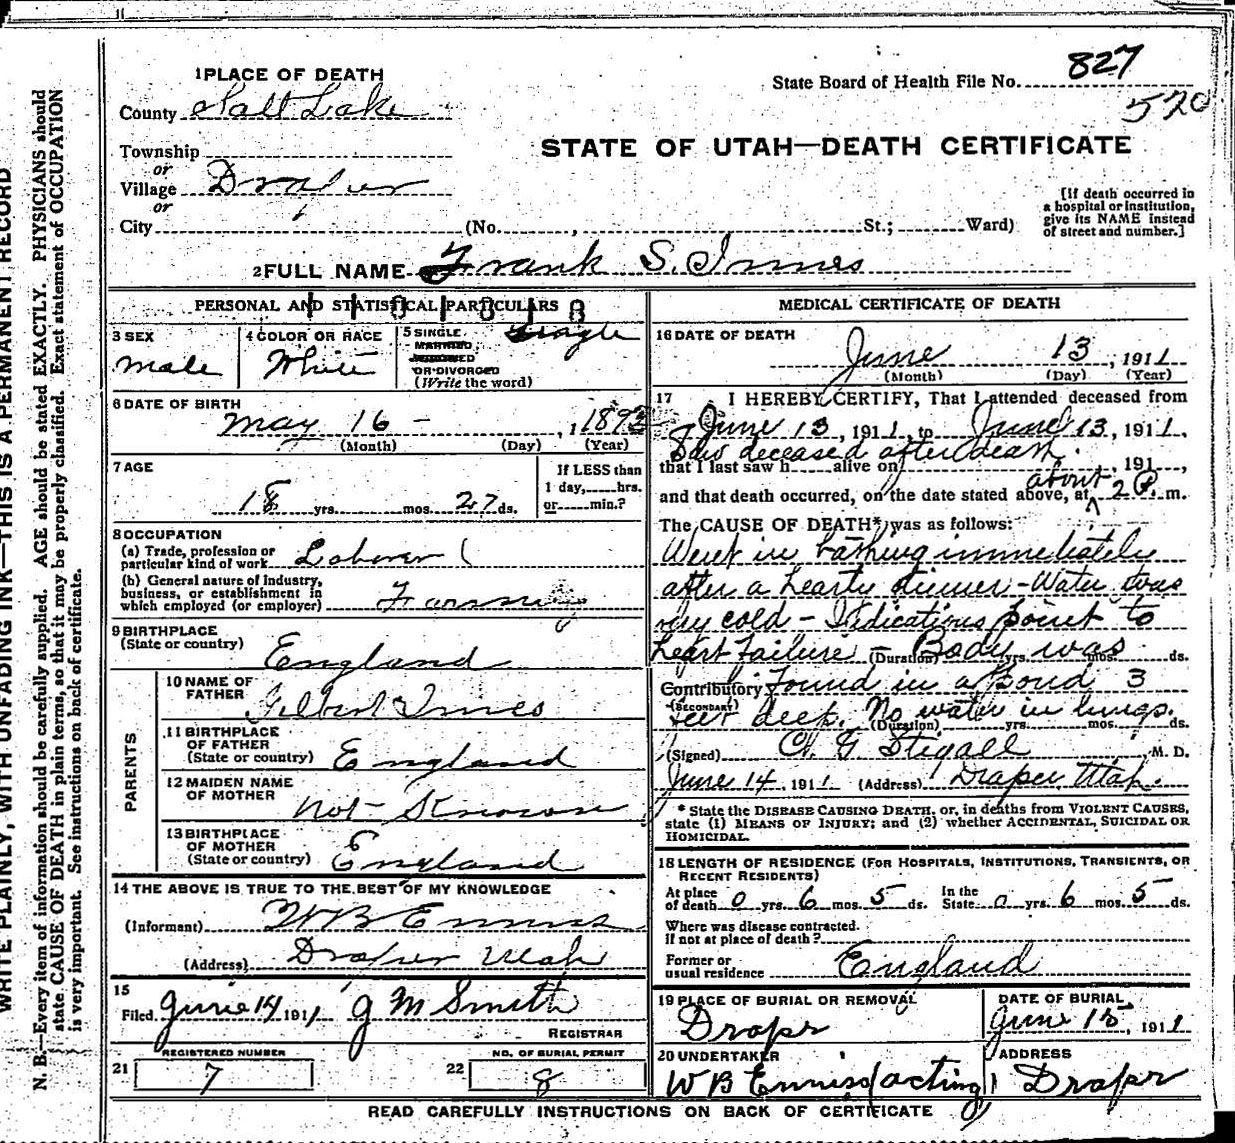 1 PLACE OF DEATH
State Board of Health File No. 827
520
County Salt Lake
STATE OF UTAH—DEATH CERTIFICATE
Township
or
Village Draper
or
City (No. , St.; Ward)
[If death occurred in
a hospital or institution,
give its NAME instead
of street and number.]
2 FULL NAME Frank S. Innes
PERSONAL AND STATISTICAL PARTICULARS
3 SEX
Male
4 COLOR OR RACE
White
5 SINGLE,
MARRIED,
WIDOWED
OR DIVORCED
(Write the word)
Single
6 DATE OF BIRTH
May 16 - , 1893
(Month) (Day) (Year)
7 AGE
18 yrs. mos. 27 ds.
If LESS than
1 day, hrs.
or min.?
8 OCCUPATION
(a) Trade, profession or
particular kind of work Laborer
(b) General nature of industry,
business, or establishment in
which employed (or employer) Farming
9 BIRTHPLACE
(State or country) England
PARENTS
10 NAME OF
FATHER Gilbert Innes
11 BIRTHPLACE
OF FATHER
(State or country) England
12 MAIDEN NAME
OF MOTHER Not Known
13 BIRTHPLACE
OF MOTHER
(State or country) England
14 THE ABOVE IS TRUE TO THE BEST OF MY KNOWLEDGE
(Informant) W B Ennis
(Address) Draper Utah
15
Filed June 14 1911 J M Smith
REGISTRAR
REGISTERED NUMBER
21 7
NO. OF BURIAL PERMIT
22 8
MEDICAL CERTIFICATE OF DEATH
16 DATE OF DEATH
June 13, 1911
(Month) (Day) (Year)
17 I HEREBY CERTIFY, That I attended deceased from
June 13, 1911, to June 13, 1911,
Saw deceased after death.
that I last saw h alive on , 191 ,
about
and that death occurred, on the date stated above, at 2 P. m.
The CAUSE OF DEATH* was as follows:
Went in bathing immediately
after a hearty dinner - Water was
very cold - Indications point to
heart failure - Body was
(Duration) yrs. mos. ds.
Contributory found in a pond 3
(SECONDARY)
feet deep. No water in lungs.
(Duration) yrs. mos. ds.
(Signed) A. G. Stegall M. D.
June 14, 1911 (Address) Draper, Utah.
* State the DISEASE CAUSING DEATH, or, in deaths from VIOLENT CAUSES,
state (1) MEANS OF INJURY; and (2) whether ACCIDENTAL, SUICIDAL OR
HOMICIDAL.
18 LENGTH OF RESIDENCE (FOR HOSPITALS, INSTITUTIONS, TRANSIENTS, OR
RECENT RESIDENTS)
At place
of death 0 yrs. 6 mos. 5 ds. In the
State 0 yrs. 6 mos. 5 ds.
Where was disease contracted.
if not at place of death?
Former or
usual residence England
19 PLACE OF BURIAL OR REMOVAL
Drapr
DATE OF BURIAL
June 15, 1911
20 UNDERTAKER
W B Ennis (acting)
ADDRESS
Drapr
READ CAREFULLY INSTRUCTIONS ON BACK OF CERTIFICATE
WRITE PLAINLY, WITH UNFADING INK—THIS IS A PERMANENT RECORD
N. B.—Every item of information should be carefully supplied. AGE should be stated EXACTLY. PHYSICIANS should
state CAUSE OF DEATH in plain terms, so that it may be properly classified. Exact statement of OCCUPATION
is very important. See instructions on back of certificate.